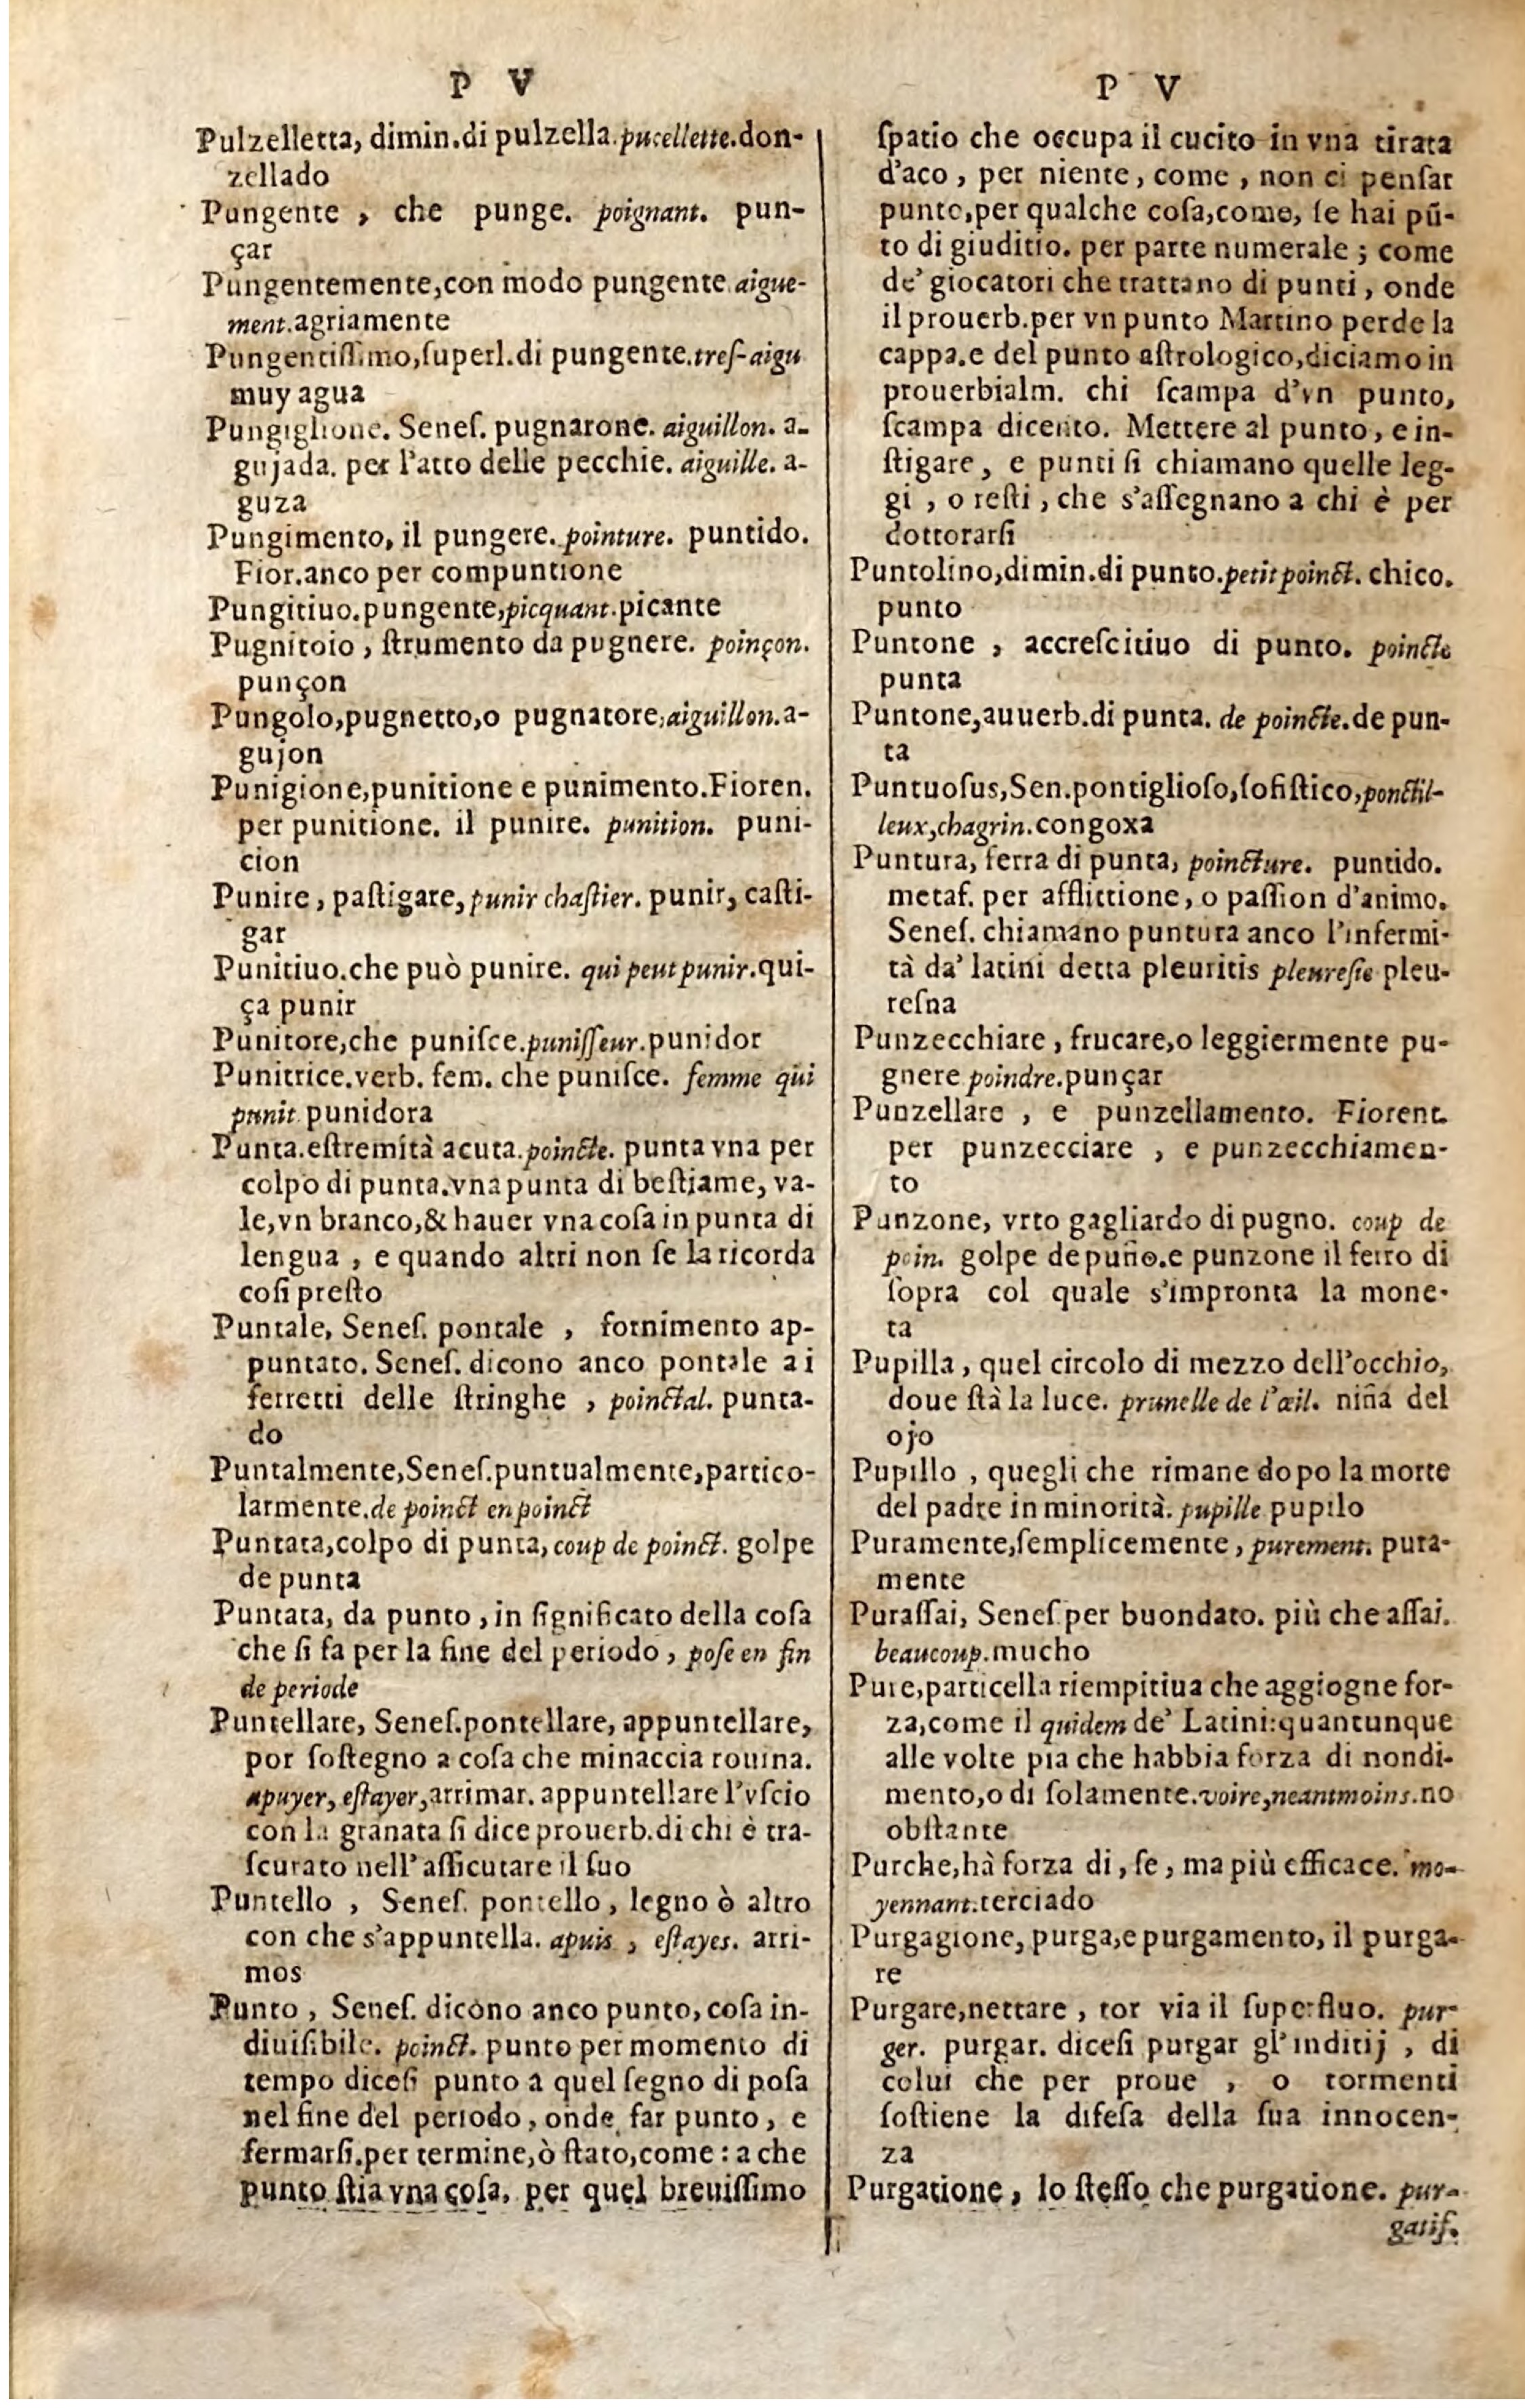 P V
Pulzelletta, dimin.di pulzella.pucellette.don-
zellado
Pungente , che punge. poignant. pun-
çar
Pungentemente,con modo pungente.aigue-
ment.agriamente
Pungentiſſimo,ſuperl.di pungente.treſ-aigu
muy agua
Pungiglione. Seneſ. pugnarone. aiguillon. a-
gujada. per l'atto delle pecchie. aiguille. a-
guza
Pungimento, il pungere. pointure. puntido.
Fior.anco per compuntione
Pungitiuo.pungente,picquant.picante
Pugnitoio , ſtrumento da pugnere. poinçon.
punçon
Pungolo,pugnetto,o pugnatore,aiguillon.a-
gujon
Punigione,punitione e punimento.Fioren.
per punitione. il punire. punition. puni-
cion
Punire , paſtigare, punir chaſtier. punir, caſti-
gar
Punitiuo.che può punire. qui peut punir.qui-
ça punir
Punitore,che puniſce.puniſſeur.punidor
Punitrice.verb. fem. che puniſce. femme qui
punit punidora
Punta.eſtremità acuta.poincte. punta vna per
colpo di punta.vna punta di beſtiame, va-
le,vn branco,& hauer vna coſa in punta di
lengua , e quando altri non ſe la ricorda
coſi preſto
Puntale, Seneſ. pontale , fornimento ap-
puntato. Seneſ. dicono anco pontale ai
ferretti delle ſtringhe , poinctal. punta-
do
Puntalmente,Seneſ.puntualmente,partico-
larmente.de poinct en poinct
Puntata,colpo di punta, coup de poinct. golpe
de punta
Puntata, da punto , in ſignificato della coſa
che ſi fa per la fine del periodo , poſe en fin
de periode
Puntellare, Seneſ.pontellare, appuntellare,
por ſoſtegno a coſa che minaccia rouina.
apuyer, eſtayer,arrimar. appuntellare l'vſcio
con la granata ſi dice prouerb.di chi è tra-
ſcurato nell'aſſicutare il ſuo
Puntello , Seneſ. pontello , legno ò altro
con che s'appuntella. apuis , eſtayes. arri-
mos
Punto , Seneſ. dicono anco punto, coſa in-
diuiſibile. poinct. punto per momento di
tempo diceſi punto a quel ſegno di poſa
nel fine del periodo , onde far punto , e
fermarſi.per termine,ò ſtato,come : a che
punto ſtia vna coſa, per quel breuiſſimo
P V
ſpatio che occupa il cucito in vna tirata
d'aco , per niente, come , non ci penſar
punto,per qualche coſa,come, ſe hai pũ-
to di giuditio. per parte numerale ; come
de' giocatori che trattano di punti , onde
il prouerb.per vn punto Martino perde la
cappa.e del punto aſtrologico,diciamo in
prouerbialm. chi ſcampa d'vn punto,
ſcampa dicento. Mettere al punto, e in-
ſtigare, e punti ſi chiamano quelle leg-
gi , o reſti , che s'aſſegnano a chi è per
dottorarſi
Puntolino,dimin.di punto.petit poinct. chico.
punto
Puntone , accreſcitiuo di punto. poincte
punta
Puntone,auuerb.di punta. de poincte.de pun-
ta
Puntuoſus,Sen.pontiglioſo,ſofiſtico,ponctil-
leux,chagrin.congoxa
Puntura, ferra di punta, poincture. puntido.
metaf. per afflittione, o paſſion d'animo.
Seneſ. chiamano puntura anco l'infermi-
tà da' latini detta pleuritis pleureſie pleu-
reſna
Punzecchiare , frucare,o leggiermente pu-
gnere poindre.punçar
Punzellare , e punzellamento. Fiorent.
per punzecciare , e punzecchiamen-
to
Punzone, vrto gagliardo di pugno. coup de
poin. golpe de puño.e punzone il ferro di
ſopra col quale s'impronta la mone-
ta
Pupilla , quel circolo di mezzo dell'occhio,
doue ſtà la luce. prunelle de l'œil. niña del
ojo
Pupillo , quegli che rimane dopo la morte
del padre in minorità. pupille pupilo
Puramente,ſemplicemente , purement. pura-
mente
Puraſſai, Seneſ.per buondato. più che aſſai.
beaucoup.mucho
Pure,particella riempitiua che aggiogne for-
za,come il quidem de' Latini:quantunque
alle volte pia che habbia forza di nondi-
mento,o di ſolamente.voire,neantmoins.no
obſtante
Purche,hà forza di , ſe , ma più efficace. mo-
yennant.terciado
Purgagione, purga,e purgamento, il purga-
re
Purgare,nettare , tor via il ſuperfluo. pur-
ger. purgar. diceſi purgar gl'inditij , di
colui che per proue , o tormenti
ſoſtiene la difeſa della ſua innocen-
za
Purgatione, lo ſteſſo che purgatione. pur-
gatif.